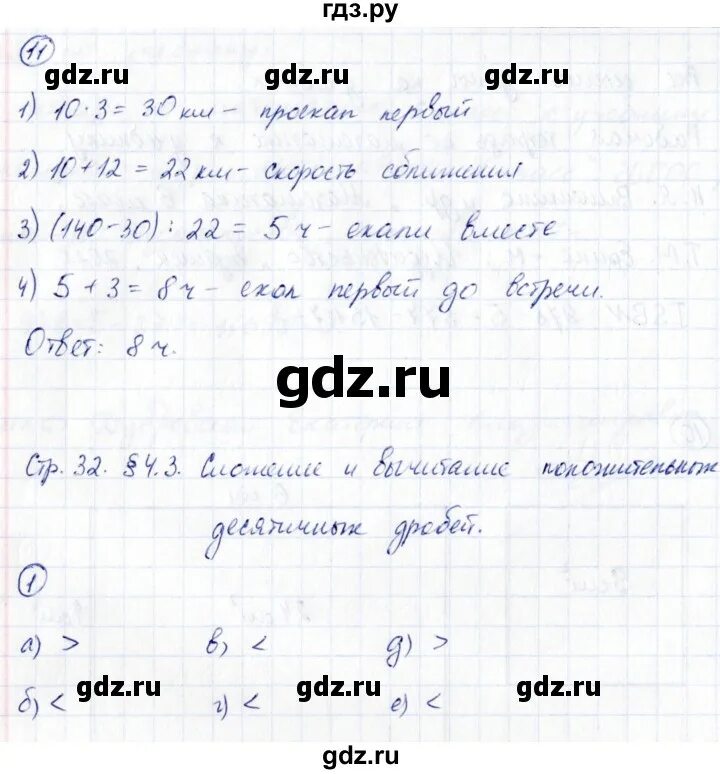 гдз.ру
11
gdz.ru gdz.ru
1) 10·3 = 30 км – проехал первый
2) 10+12 = 22 км – скорость сближения
gdz.ru gdz.ru
3) (140-30) : 22 = 5 ч – ехали вместе
4) 5 + 3 = 8 ч – ехал первый до встречи.
Ответ: 8 ч.
gdz.ru
Стр. 32. §4.3. Сложение и вычитание положительных
десятичных дробей.
gdz.ru gdz.ru
1
а) > в) < д) >
gdz.ru gdz.ru
б) < г) < е) <
gdz.ru